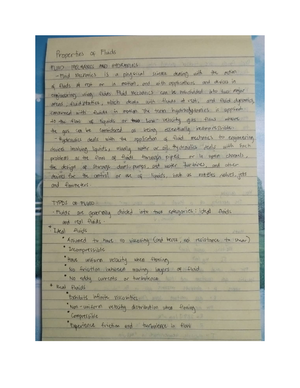 Properties of Fluids
FLUID MECHANICS AND HYDRAULICS
- Fluid Mechanics is a physical science dealing with the action
of fluids at rest or in motion, and with applications and devices in
engineering using fluids. Fluid mechanics can be subdivided into two major
areas, fluid statics, which deals with fluids at rest, and fluid dynamics,
concerned with fluids in motion. The term hydrodynamics is applied
to the flow of liquids or to low-velocity gas flows where
the gas can be considered as being essentially incompressible.
Hydraulics deals with the application of fluid mechanics to engineering
devices involving liquids, usually water or oil. Hydraulics deals with such
problems as the flow of fluids through pipes or in open channels,
the design of storage dams, pumps, and water turbines, and other
devices for the control or use of liquids, such as nozzles, valves, jets
and flowmeters.
TYPES OF FLUID
- Fluids are generally divided into two categories: ideal fluids
and real fluids.
• Ideal fluids
* Assumed to have no viscosity (and hence no resistance to shear)
* Incompressible
* Have uniform velocity when flowing
* No friction between moving layers of fluid
* No eddy currents or turbulence
• Real fluids
* Exhibits infinite viscosities
* Non-uniform velocity distribution when flowing
* Compressible
* Experienced friction and turbulence in flow